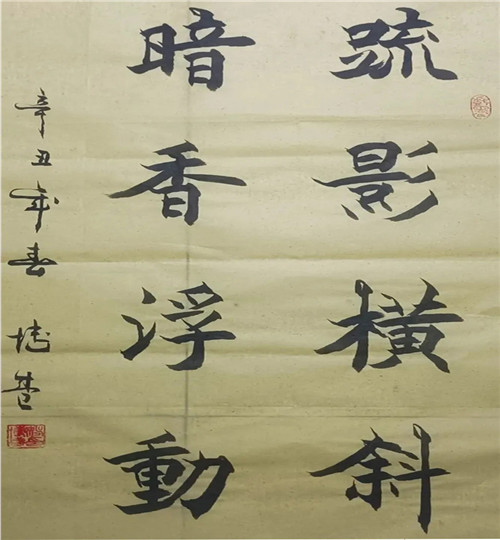 疏影橫斜
暗香浮動
辛丑年春